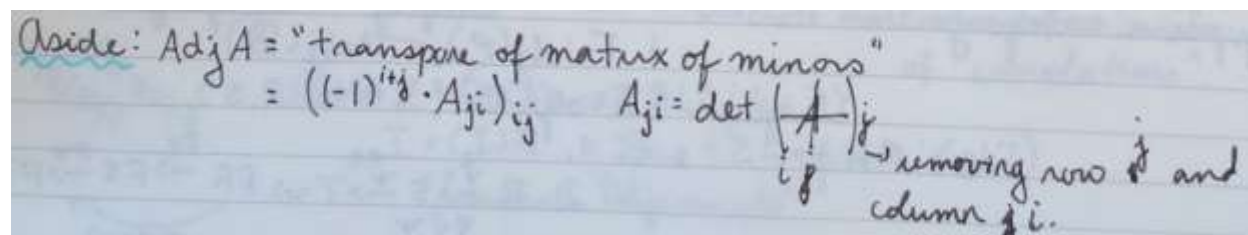 Aside: Adj A = "transpose of matrix of minors"
= ((-1)^{i+j} · A_{ji})_{ij} A_{ji} = det (A)_j
i → removing row j and
column i.